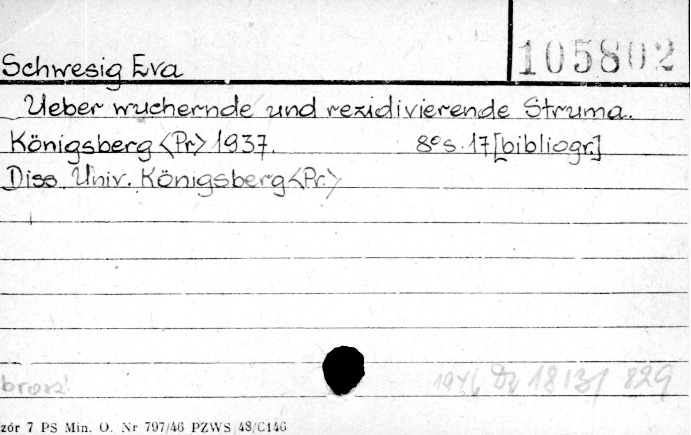 105802
Schwesig Eva
Ueber wuchernde und rezidivierende Struma.
Königsberg <Pr> 1937. 8° s. 17 [bibliogr.]
Diss. Univ. Königsberg <Pr.>
1946 Dz 1813/ 829
zór 7 PS Min. O. Nr 797/46 PZWS 48/C146